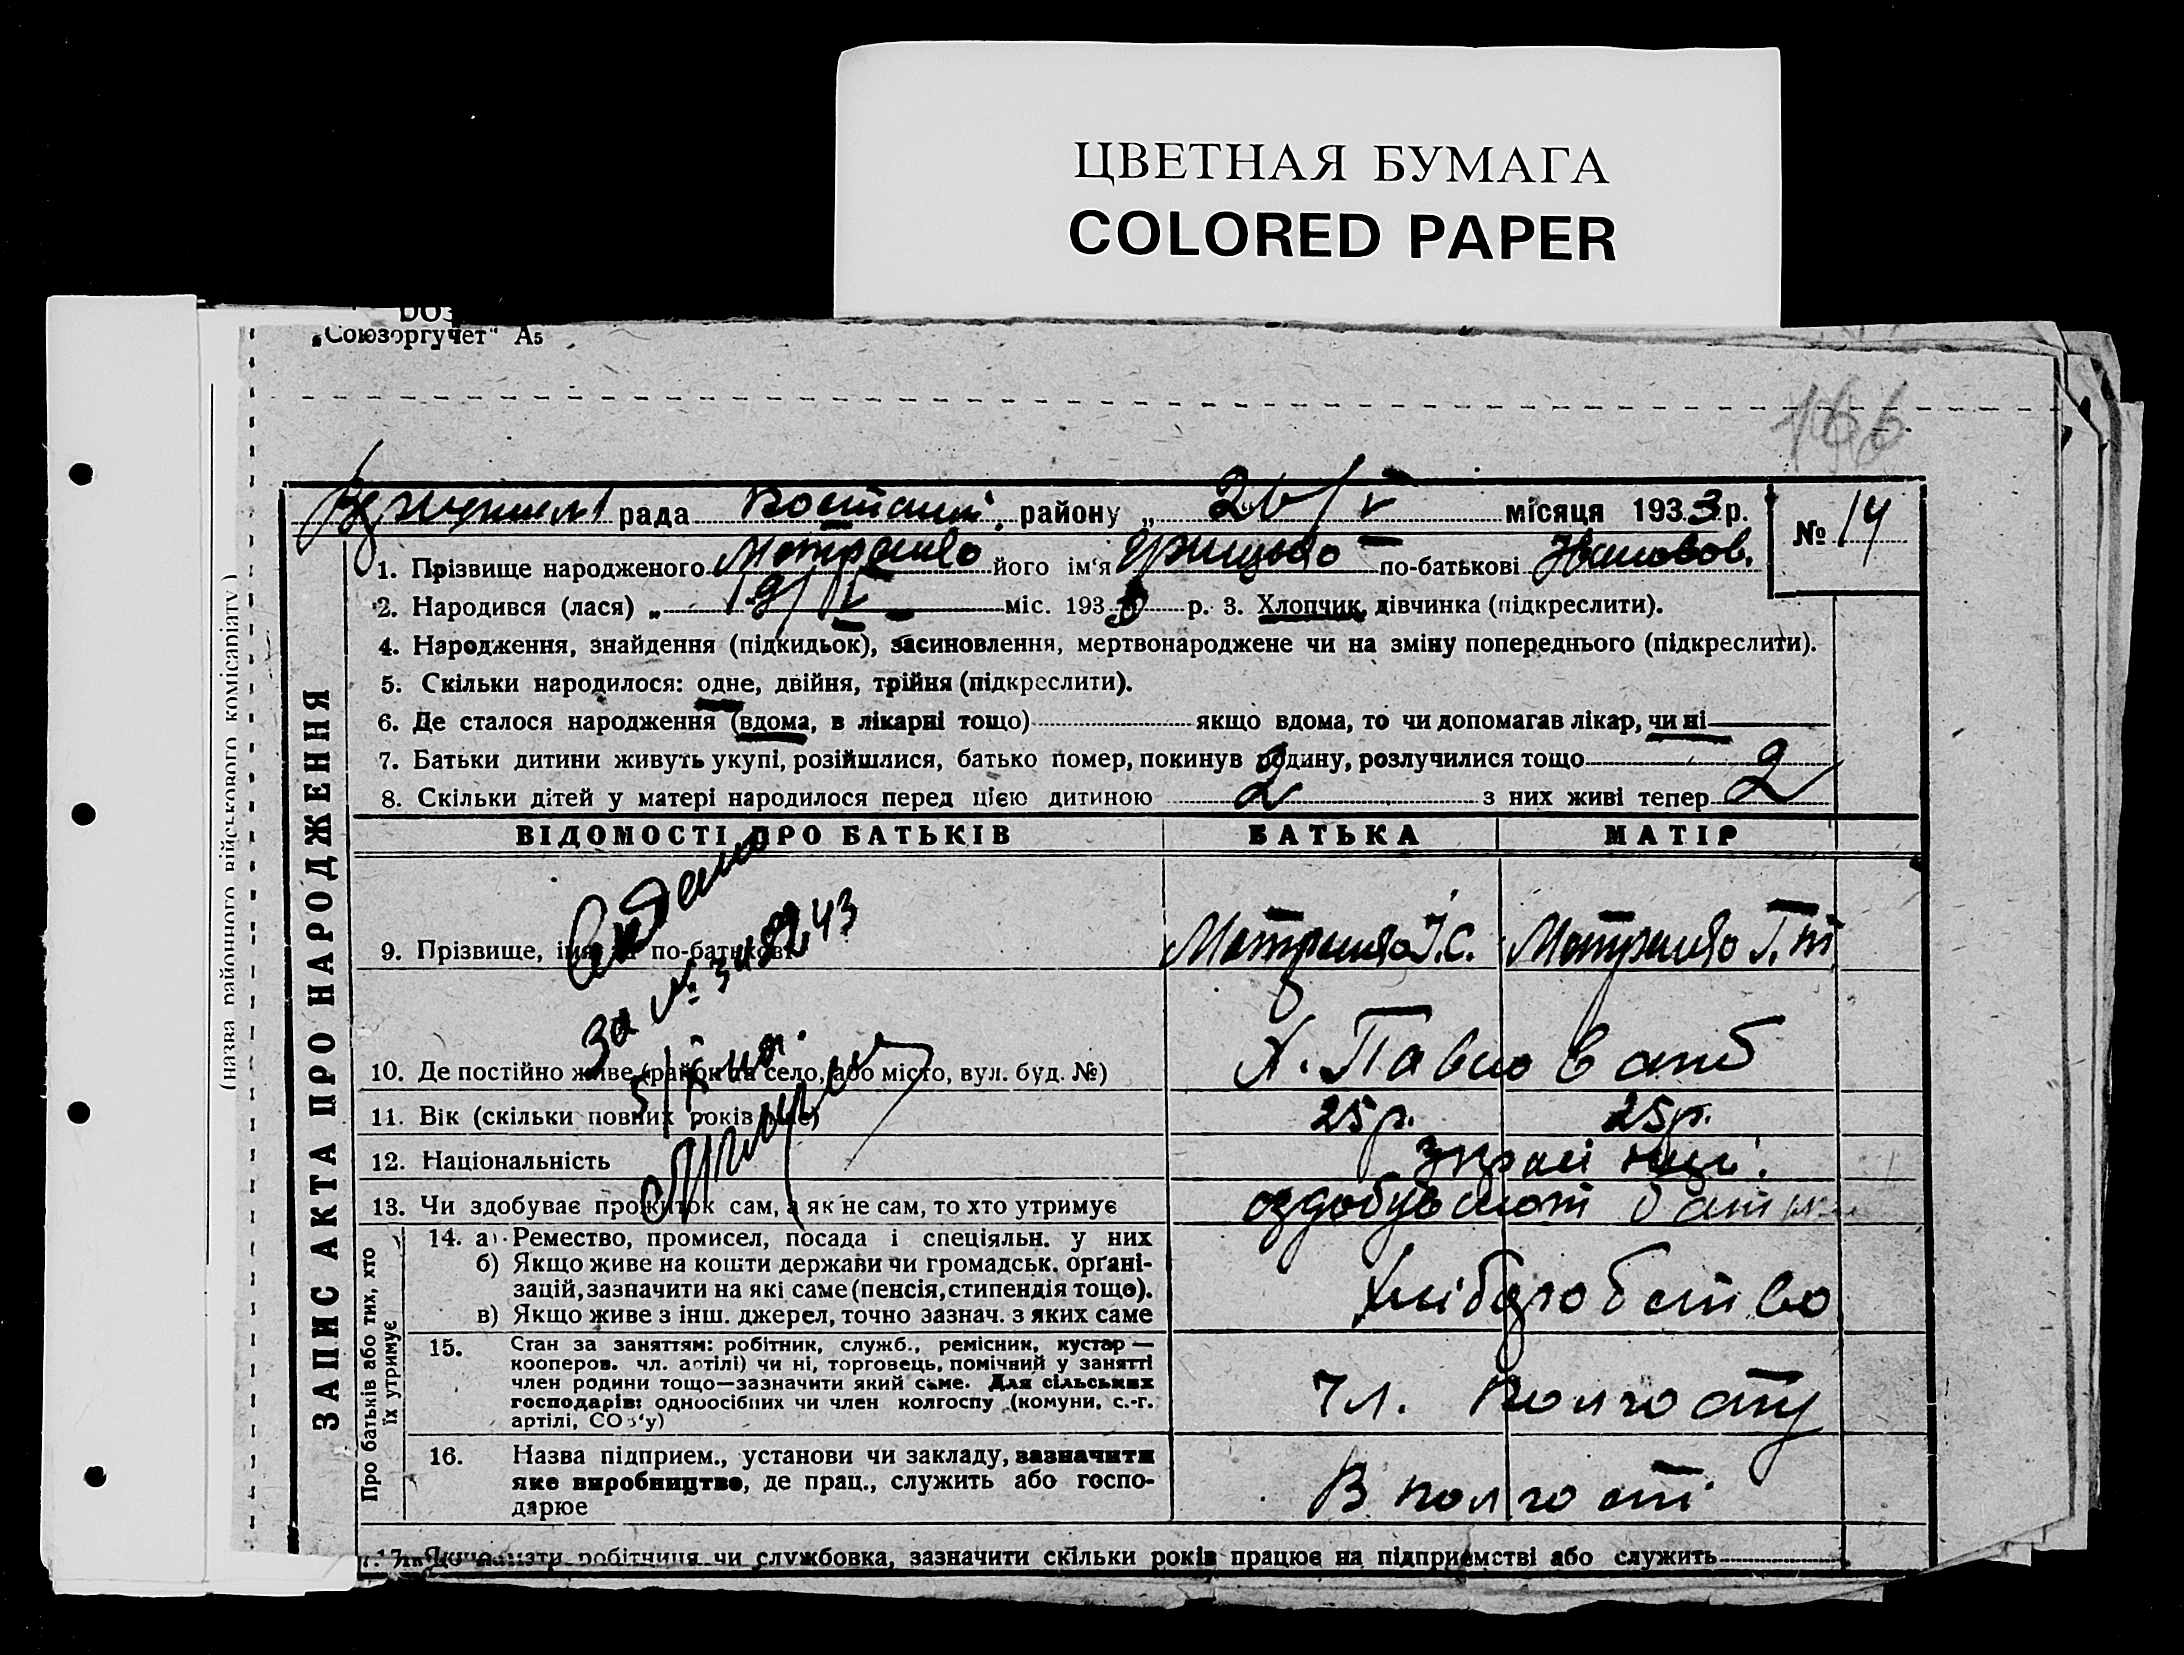 ЦВЕТНАЯ БУМАГА
COLORED PAPER
„Союзоргучет" А5
166
рада району „ 26/V місяця 1933 р. № 14
1. Прізвище народженого його ім'я Грицько по-батькові Іванов.
2. Народився (лася) „ 19/V міс. 1933 р. 3. Хлопчик, дівчинка (підкреслити).
4. Народження, знайдення (підкидьок), засиновлення, мертвонароджене чи на зміну попереднього (підкреслити).
5. Скільки народилося: одне, двійня, трійня (підкреслити).
6. Де сталося народження (вдома, в лікарні тощо) якщо вдома, то чи допомагав лікар, чи ні
7. Батьки дитини живуть укупі, розійшлися, батько помер, покинув родину, розлучилися тощо
8. Скільки дітей у матері народилося перед цією дитиною 2 з них живі тепер 2
ВІДОМОСТІ ПРО БАТЬКІВ БАТЬКА МАТІР
9. Прізвище, імя та по-батькові
10. Де постійно живе (район та село, або місто, вул. буд. №) Х.
11. Вік (скільки повних років має) 25 р. 25 р.
12. Національність
13. Чи здобуває прожиток сам, а як не сам, то хто утримує
14. а) Ремество, промисел, посада і спеціяльн. у них
б) Якщо живе на кошти держави чи громадськ. органі-
зацій, зазначити на які саме (пенсія, стипендія тощо).
в) Якщо живе з інш. джерел, точно зазнач. з яких саме
хліборобство
15. Стан за заняттям: робітник, служб., ремісник, кустар —
кооперов. чл. артілі) чи ні, торговець, помічний у занятті
член родини тощо—зазначити який саме. Для сільських
господарів: одноосібних чи член колгоспу (комуни, с.-г.
артілі, СОз'у)
чл. колгоспу
16. Назва підприєм., установи чи закладу, зазначити
яке виробництво, де прац., служить або госпо-
дарює
В колгоспі
17. Якщо мати робітниця чи службовка, зазначити скільки років працює на підприємстві або служить
ЗАПИС АКТА ПРО НАРОДЖЕННЯ
Про батьків або тих, хто
їх утримує
(назва районного військового комісаріату)